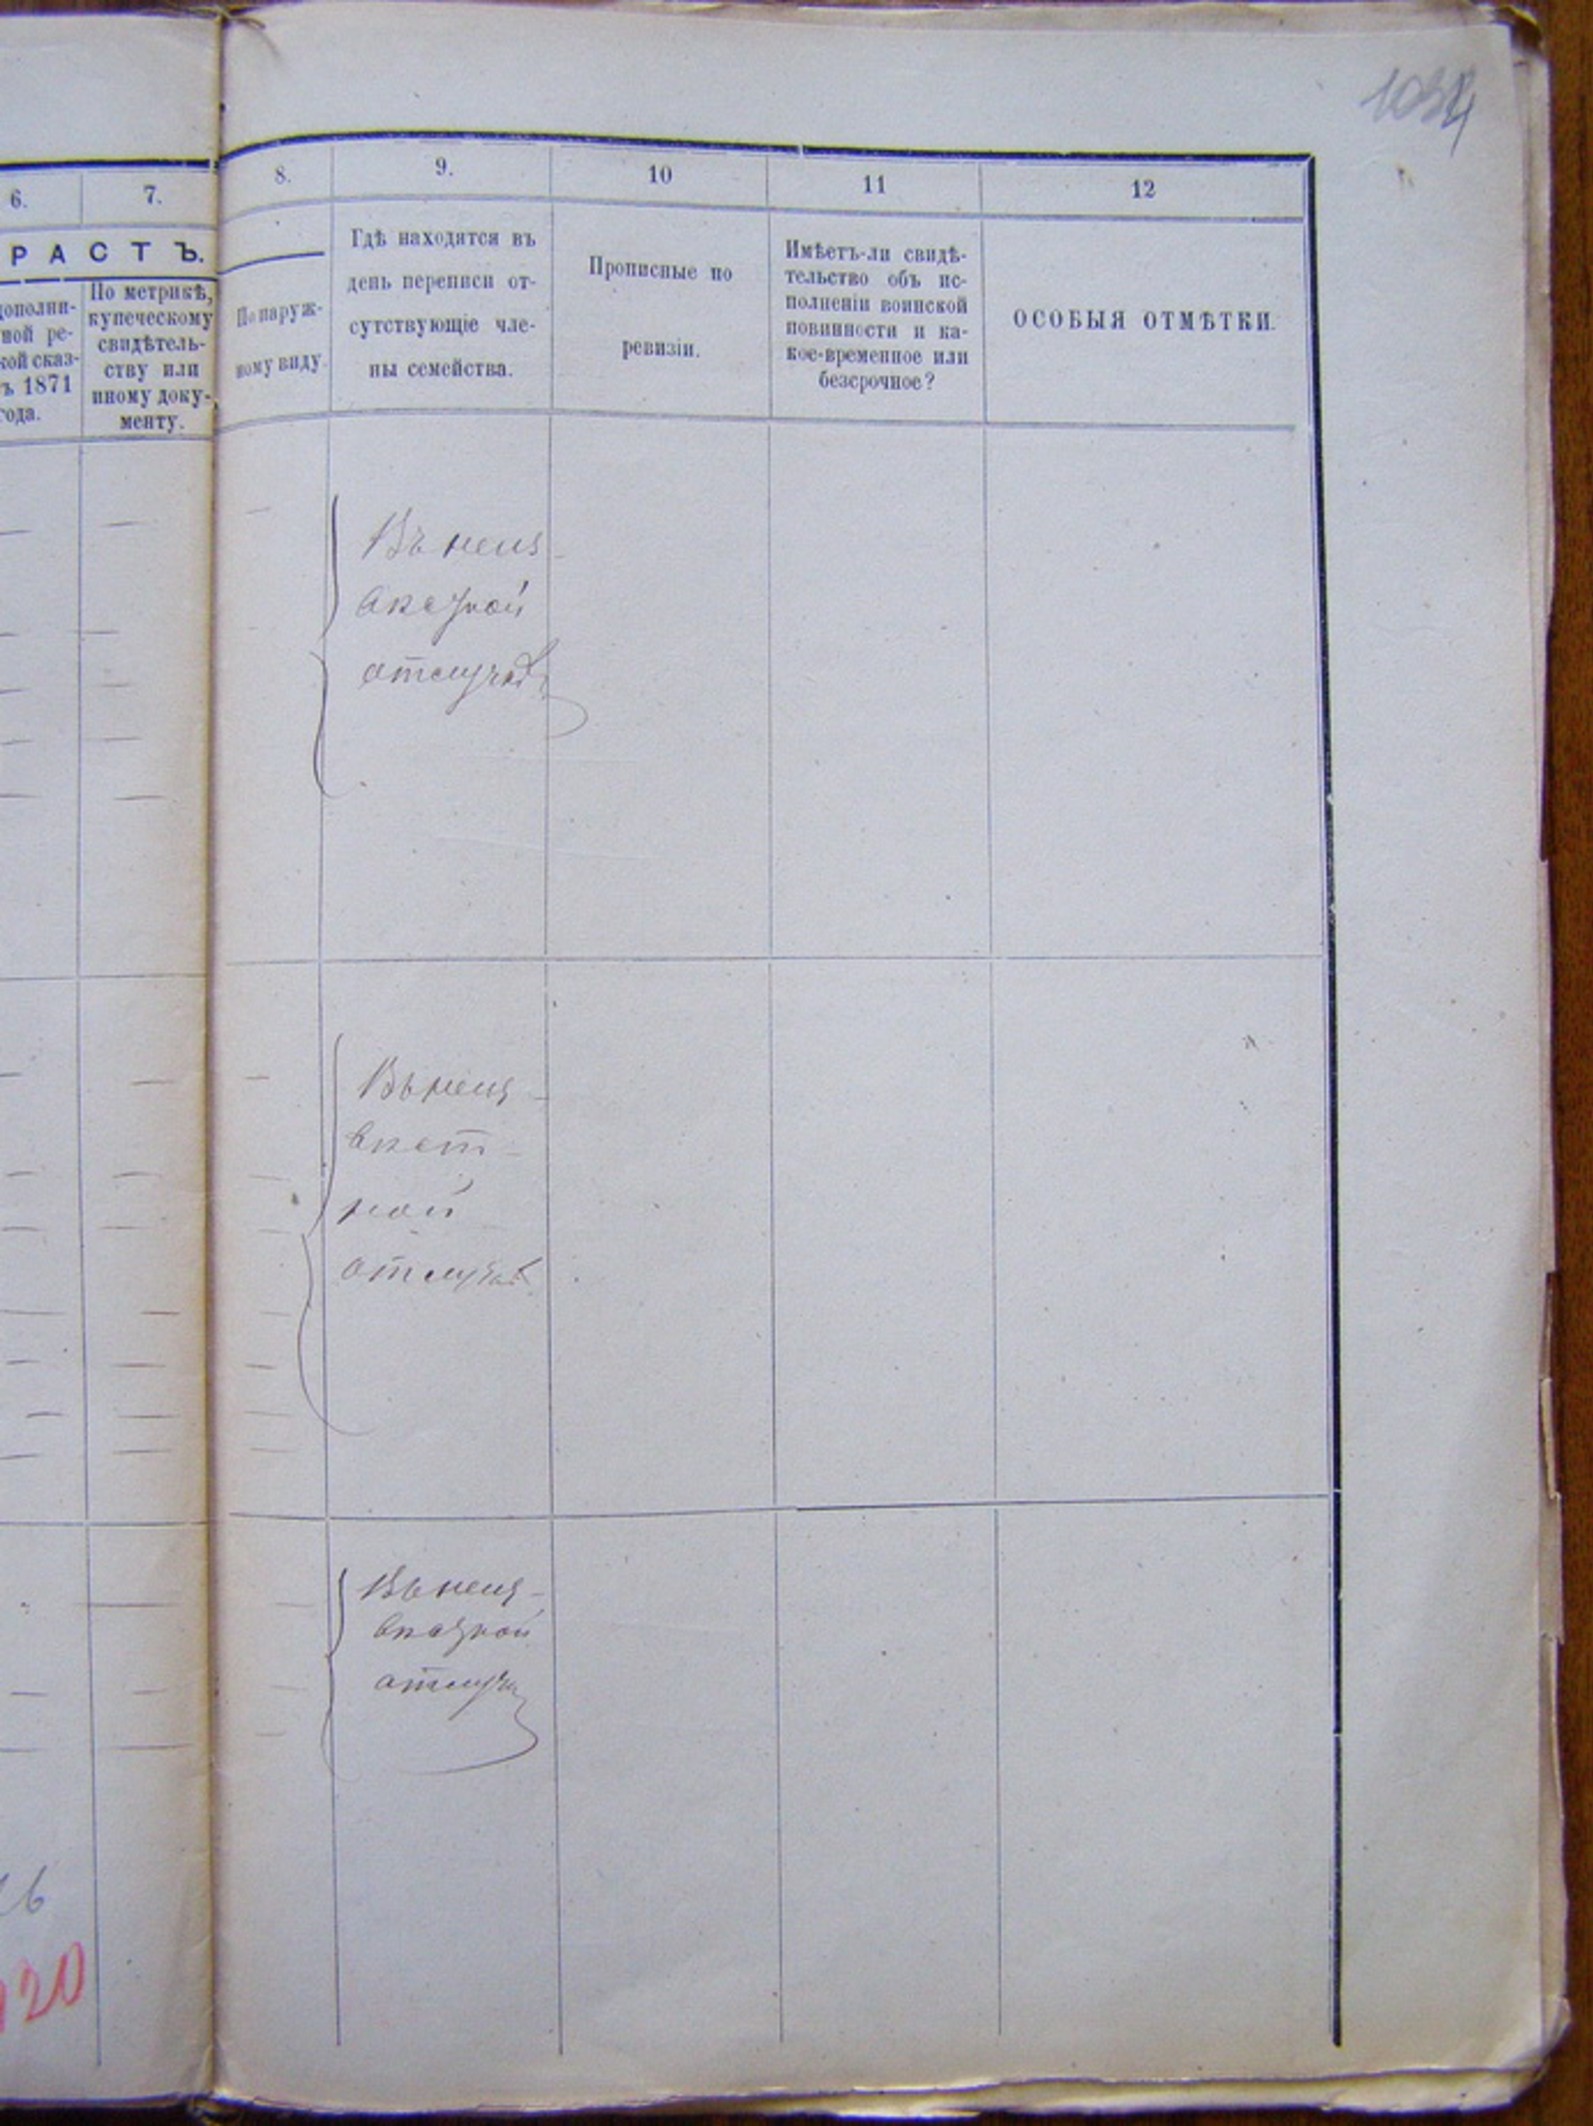 1034
6.
7.
8.
9.
10
11
12
РАСТЪ.
дополни-
ной ре-
кой сказ-
ъ 1871
года.
По метрикѣ,
купеческому
свидѣтель-
ству или
иному доку-
менту.
По наруж-
ному виду.
Гдѣ находятся въ
день переписи от-
сутствующіе чле-
ны семейства.
Прописные по
ревизіи.
Имѣетъ-ли свидѣ-
тельство объ ис-
полненіи воинской
повинности и ка-
кое-временное или
безсрочное?
ОСОБЫЯ ОТМѢТКИ.
Въ неиз-
отлучкѣ
Въ неиз-
ной
отлучкѣ
Въ неиз-
отлучкѣ
120